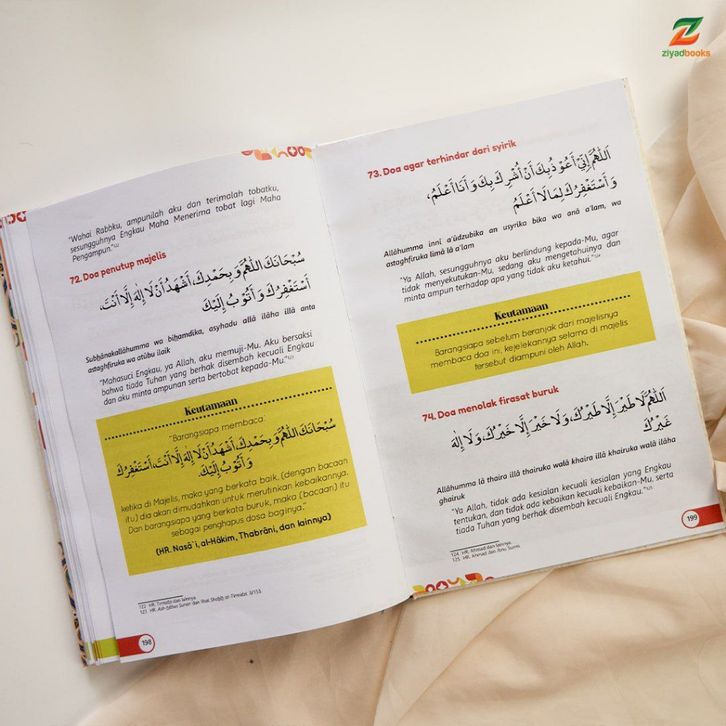 ziyadbooks
"Wahai Rabbku, ampunilah aku dan terimalah tobatku,
sesungguhnya Engkau Maha Menerima tobat lagi Maha
Pengampun."¹²²
72. Doa penutup majelis
سُبْحَانَكَ اللّٰهُمَّ وَبِحَمْدِكَ، أَشْهَدُ أَنْ لَا إِلٰهَ إِلَّا أَنْتَ،
أَسْتَغْفِرُكَ وَأَتُوْبُ إِلَيْكَ
Subḥânakallâhumma wa biḥamdika, asyhadu allâ ilâha illâ anta
astaghfiruka wa atûbu ilaik
"Mahasuci Engkau, ya Allah, aku memuji-Mu. Aku bersaksi
bahwa tiada Tuhan yang berhak disembah kecuali Engkau
dan aku minta ampunan serta bertobat kepada-Mu."¹²³
Keutamaan
"Barangsiapa membaca:
سُبْحَانَكَ اللّٰهُمَّ وَبِحَمْدِكَ أَشْهَدُ أَنْ لَا إِلٰهَ إِلَّا أَنْتَ، أَسْتَغْفِرُكَ
وَأَتُوْبُ إِلَيْكَ.
ketika di Majelis, maka yang berkata baik, (dengan bacaan
itu) dia akan dimudahkan untuk merutinkan kebaikannya.
Dan barangsiapa yang berkata buruk, maka (bacaan) itu
sebagai penghapus dosa baginya."
(HR. Nasâ`i, al-Hâkim, Thabrâni, dan lainnya)
122 HR. Tirmidzi dan lainnya.
123 HR. Ash-habus Sunan dan lihat Shaḥîḥ at-Tirmidzi, 3/153.
198
73. Doa agar terhindar dari syirik
اَللّٰهُمَّ إِنِّيْ أَعُوْذُ بِكَ أَنْ أُشْرِكَ بِكَ وَأَنَا أَعْلَمُ،
وَأَسْتَغْفِرُكَ لِمَا لَا أَعْلَمُ
Allâhumma innî a'ûdzubika an usyrika bika wa anâ a'lam, wa
astaghfiruka limâ lâ a'lam
"Ya Allah, sesungguhnya aku berlindung kepada-Mu, agar
tidak menyekutukan-Mu, sedang aku mengetahuinya dan
minta ampun terhadap apa yang tidak aku ketahui."¹²⁴
Keutamaan
Barangsiapa sebelum beranjak dari majelisnya
membaca doa ini, kejelekannya selama di majelis
tersebut diampuni oleh Allah.
74. Doa menolak firasat buruk
اَللّٰهُمَّ لَا طَيْرَ إِلَّا طَيْرُكَ، وَلَا خَيْرَ إِلَّا خَيْرُكَ، وَلَا إِلٰهَ
غَيْرُكَ
Allâhumma lâ thaira illâ thairuka walâ khaira illâ khairuka walâ ilâha
ghairuk
"Ya Allah, tidak ada kesialan kecuali kesialan yang Engkau
tentukan, dan tidak ada kebaikan kecuali kebaikan-Mu, serta
tiada Tuhan yang berhak disembah kecuali Engkau."¹²⁵
124 HR. Ahmad dan lainnya.
125 HR. Ahmad dan Ibnu Sunni.
199